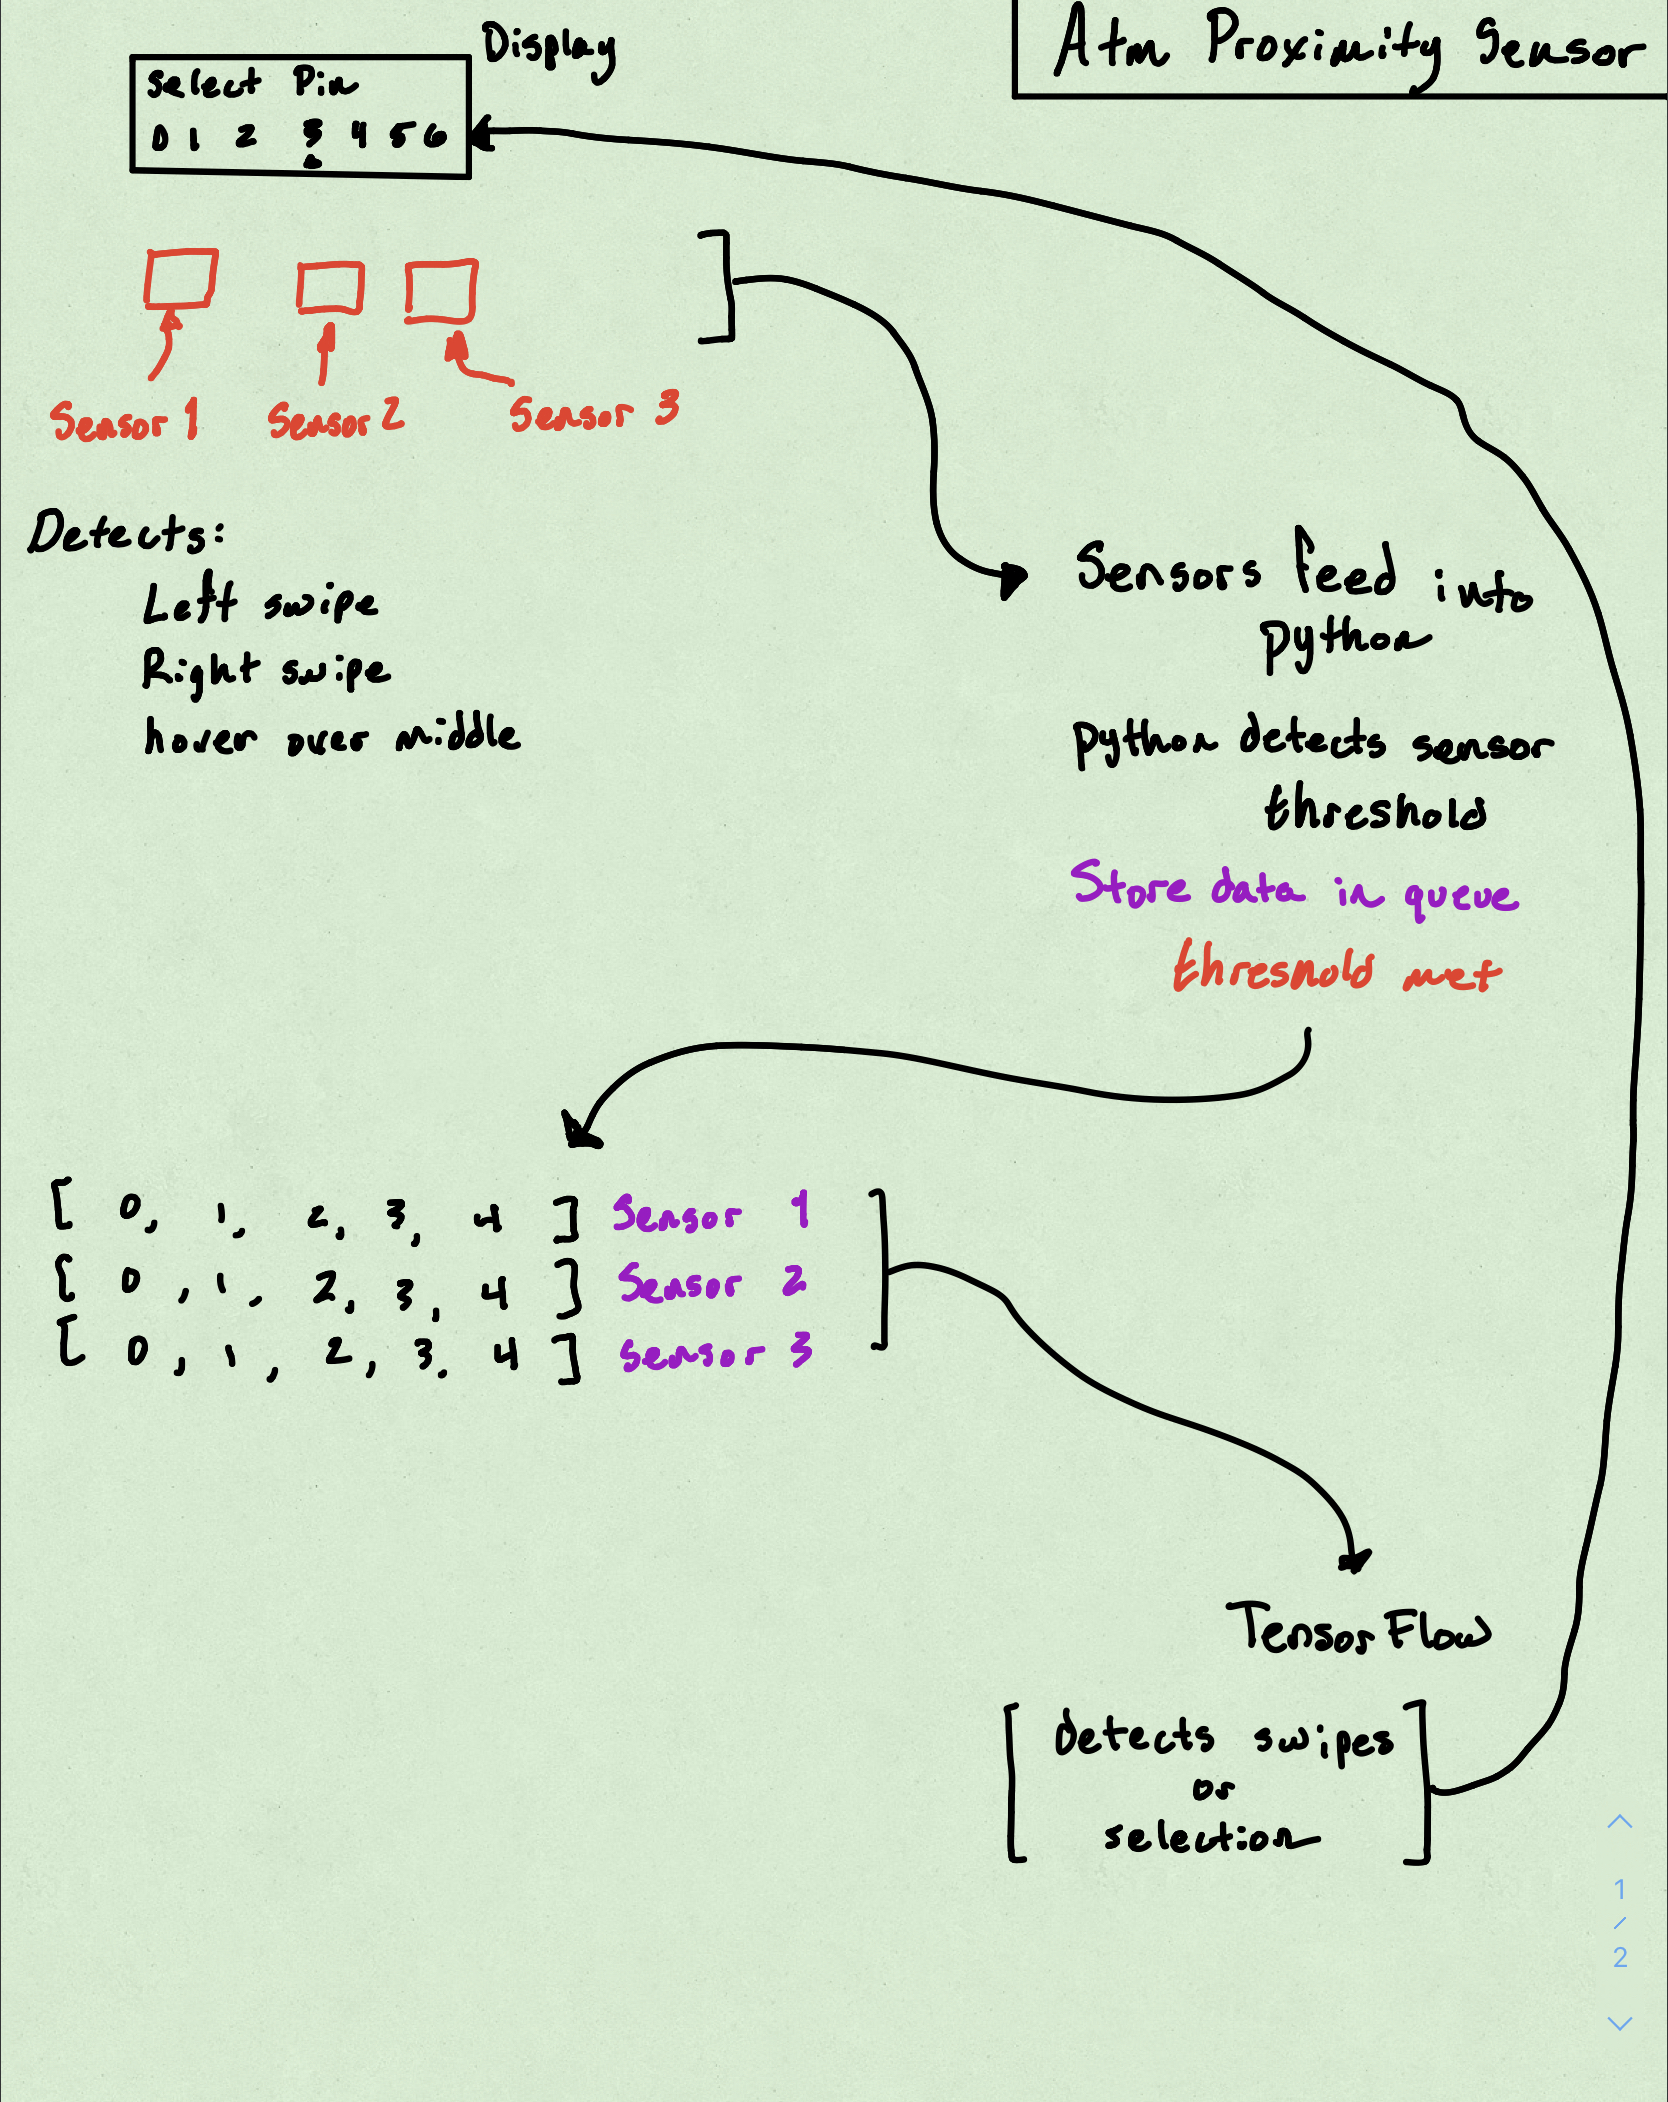 Atm Proximity Sensor
Display
Select Pin
0 1 2 3 4 5 6
Sensor 1
Sensor 2
Sensor 3
Detects:
Left swipe
Right swipe
hover over middle
Sensors feed into
python
python detects sensor
threshold
Store data in queue
threshold met
[ 0, 1, 2, 3, 4 ] Sensor 1
[ 0, 1, 2, 3, 4 ] Sensor 2
[ 0, 1, 2, 3, 4 ] Sensor 3
TensorFlow
detects swipes
or
selection
1
/
2